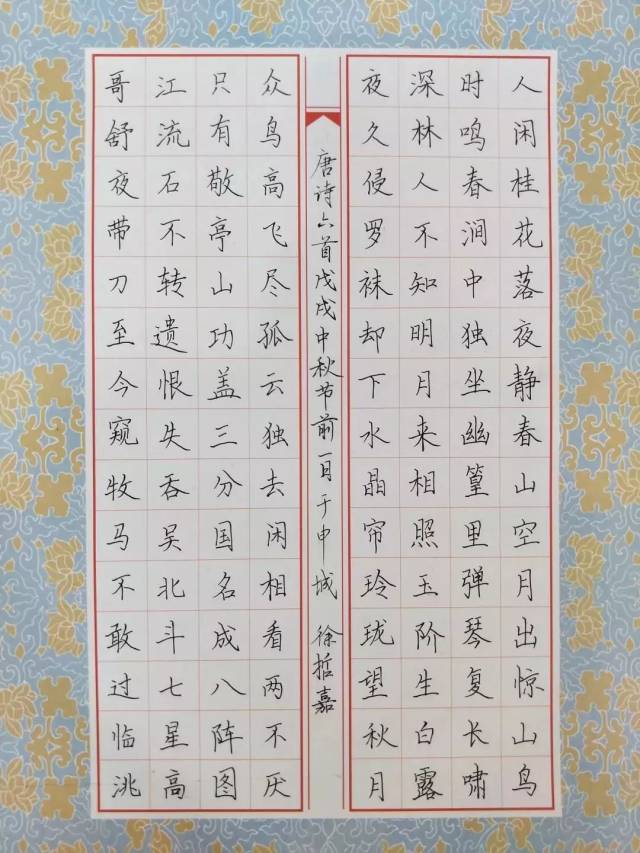 人闲桂花落夜静春山空月出惊山鸟
时鸣春涧中独坐幽篁里弹琴复长啸
深林人不知明月来相照玉阶生白露
夜久侵罗袜却下水晶帘玲珑望秋月
众鸟高飞尽孤云独去闲相看两不厌
只有敬亭山功盖三分国名成八阵图
江流石不转遗恨失吞吴北斗七星高
哥舒夜带刀至今窥牧马不敢过临洮
唐诗六首戊戌中秋节前一日于申城 徐哲嘉